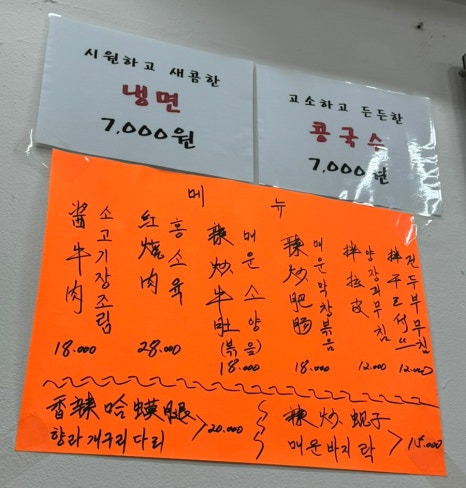 시원하고 새콤한
냉면
7,000원
고소하고 든든한
콩국수
7,000원
메 뉴
酱牛肉
소고기장조림
18.000
红烧肉
홍소육
28.000
辣炒牛肚
매운소양(볶음)
18.000
辣炒肥肠
매운막창볶음
18.000
拌拉皮
양장피무침
12.000
拌干豆付丝
건두부무침
12.000
香辣哈蟆腿
향라개구리다리
20.000
辣炒蚬子
매운바지락
15.000